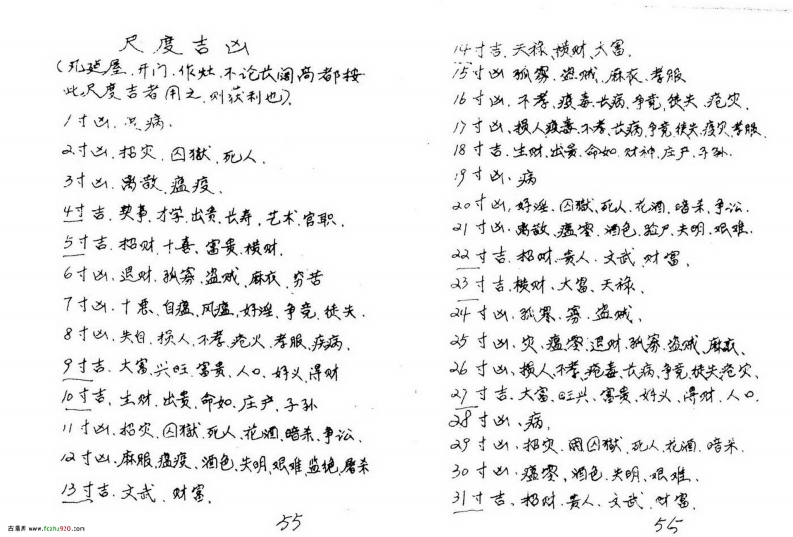 尺度吉凶
(死延屋、开门、作灶、不论长阔高都按
此尺度吉者用之、则获利也)。
1寸凶、只病、
2寸凶、招灾、囚獄、死人、
3寸凶、离散、瘟疫、
4寸吉、契事、才学、出贵、长寿、艺术、官职、
5寸吉、招财、十喜、富贵、横财、
6寸凶、退财、孤寡、盗贼、麻衣、穷苦
7寸凶、十恶、自瘟、风瘟、好淫、争竞、徒失、
8寸凶、失目、损人、不孝、疮火、孝服、疾病、
9寸吉、大富、兴旺、富贵、人口、好义、得财
10寸吉、生财、出贵、命如、庄产、子孙
11寸凶、招灾、囚獄、死人、花酒、暗杀、争讼、
12寸凶、麻服、瘟疫、酒色、失明、艰难、监绝、屠杀
13寸吉、文武、财富、
55
14寸吉、天禄、横财、大富、
15寸凶、孤寡、盗贼、麻衣、孝服
16寸凶、不孝、瘟毒、长病、争竞、徒失、疮灾、
17寸凶、损人、瘟毒、不孝、长病、争竞、徒失、疫灾、孝服、
18寸吉、生财、出贵、命如、财神、庄产、子孙、
19寸凶、病
20寸凶、好淫、囚獄、死人、花酒、暗杀、争讼、
21寸凶、离散、瘟、酒色、失明、艰难、
22寸吉、招财、贵人、文武、财富、
23寸吉、横财、大富、天禄、
24寸凶、孤寡、寡、盗贼、
25寸凶、灾、瘟、退财、孤寡、盗贼、麻衣、
26寸凶、损人、不孝、疮毒、长病、争竞、徒失、疮灾、
27寸吉、大富、旺兴、富贵、好义、得财、人口、
28寸凶、病、
29寸凶、招灾、囚獄、死人、花酒、暗杀、
30寸凶、瘟、酒色、失明、艰难、
31寸吉、招财、贵人、文武、财富、
55
古籍库 www.fczhu920.com